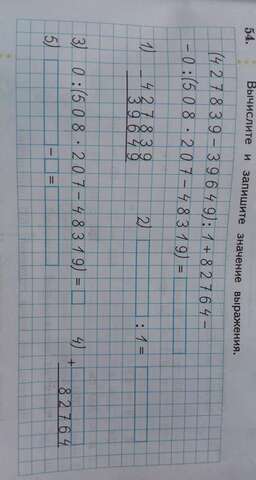 54. Вычислите и запишите значение выражения.
(427839-39649):1+82764-
-0:(508·207-48319)=
1) - 427839 2) :1=
39649
3) 0:(508·207-48319)= 4) +
82764
5) - =